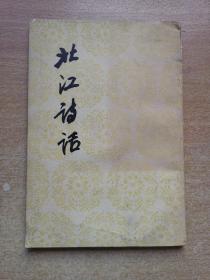 北江诗话